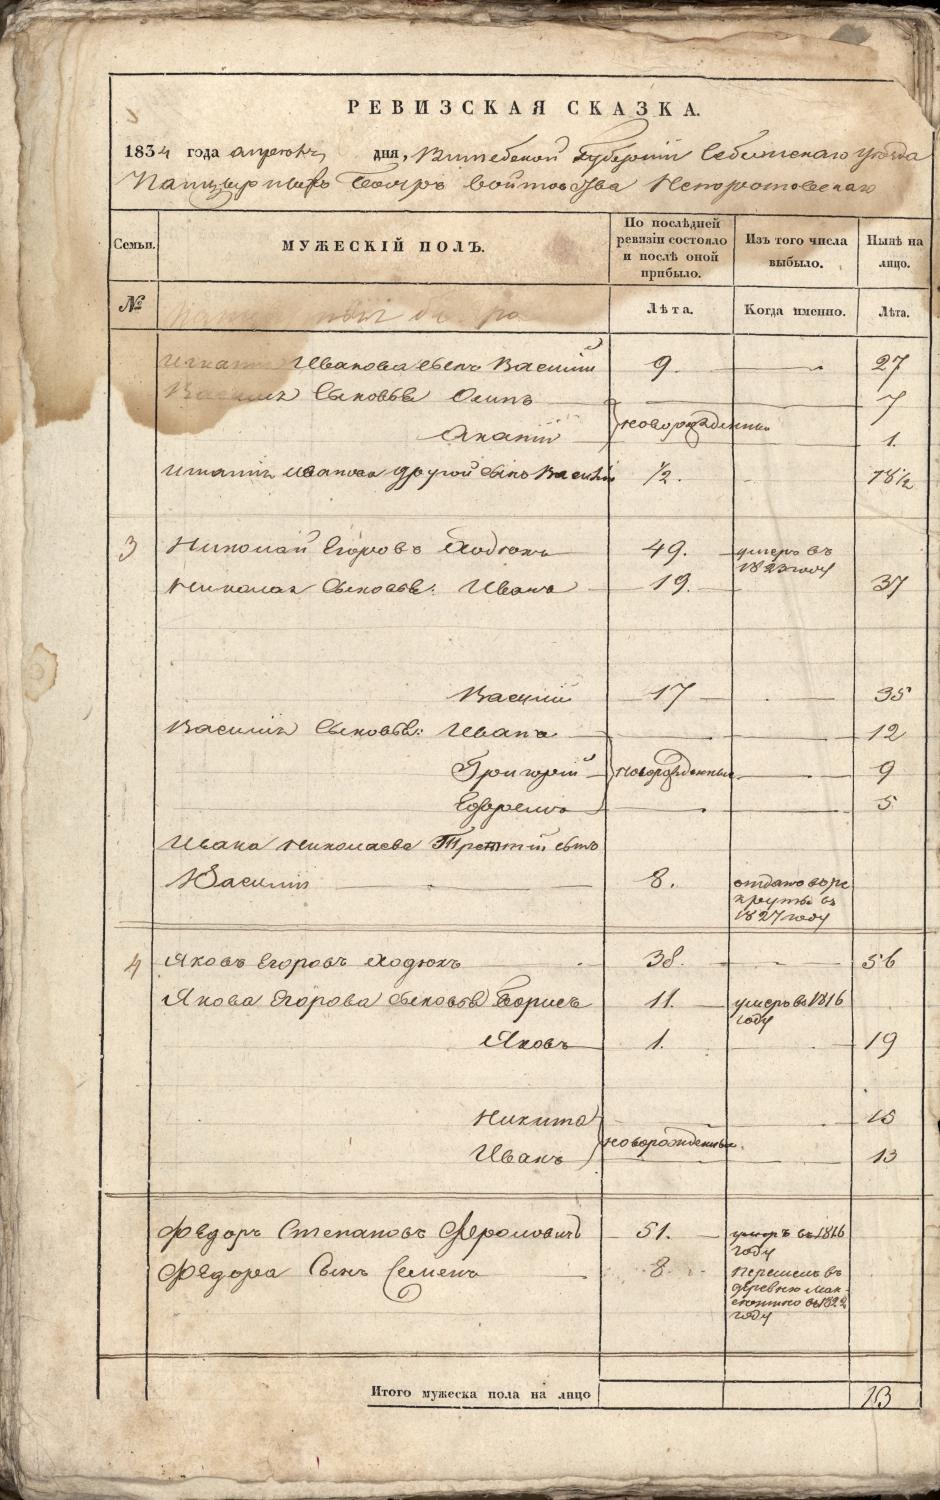 РЕВИЗСКАЯ СКАЗКА.
1834 года апреля дня, Витебской Губернии Себежскаго уезда
Панцырныхъ Бояръ Войтовства Непоротовскаго
Семьи.
МУЖЕСКІЙ ПОЛЪ.
По послѣдней ревизіи состояло и послѣ оной прибыло.
Изъ того числа выбыло.
Нынѣ на лицо.
№
Лѣта.
Когда именно.
Лѣта.
Игнатія Иванова сынъ Василій 9. 27
Василія сыновья Осипъ 7
новорожденные
Ананій 1.
Игнатія Иванова другой сынъ Василій ½. 18½
3 Николай Егоровъ Ходюкъ 49. умеръ въ 1823 году
Николая сыновья: Иванъ 19. 37
Василій 17 35
Василія сыновья: Иванъ 12
Григорій новорожденные 9
Ефремъ 5
Ивана Николаева Третій сынъ
Василій 8. отданъ в рекруты въ 1827 году
4 Яковъ Егоровъ Ходюкъ 38. 56
Якова Егорова сыновья Борисъ 11. умеръ въ 1816 году
Яковъ 1. 19
Никита 15
новорожденные
Иванъ 13
Федоръ Степановъ 51. умеръ въ 1816 году
Федора Сынъ Семенъ 8 перешелъ въ деревню въ 1822 году
Итого мужеска пола на лицо 13